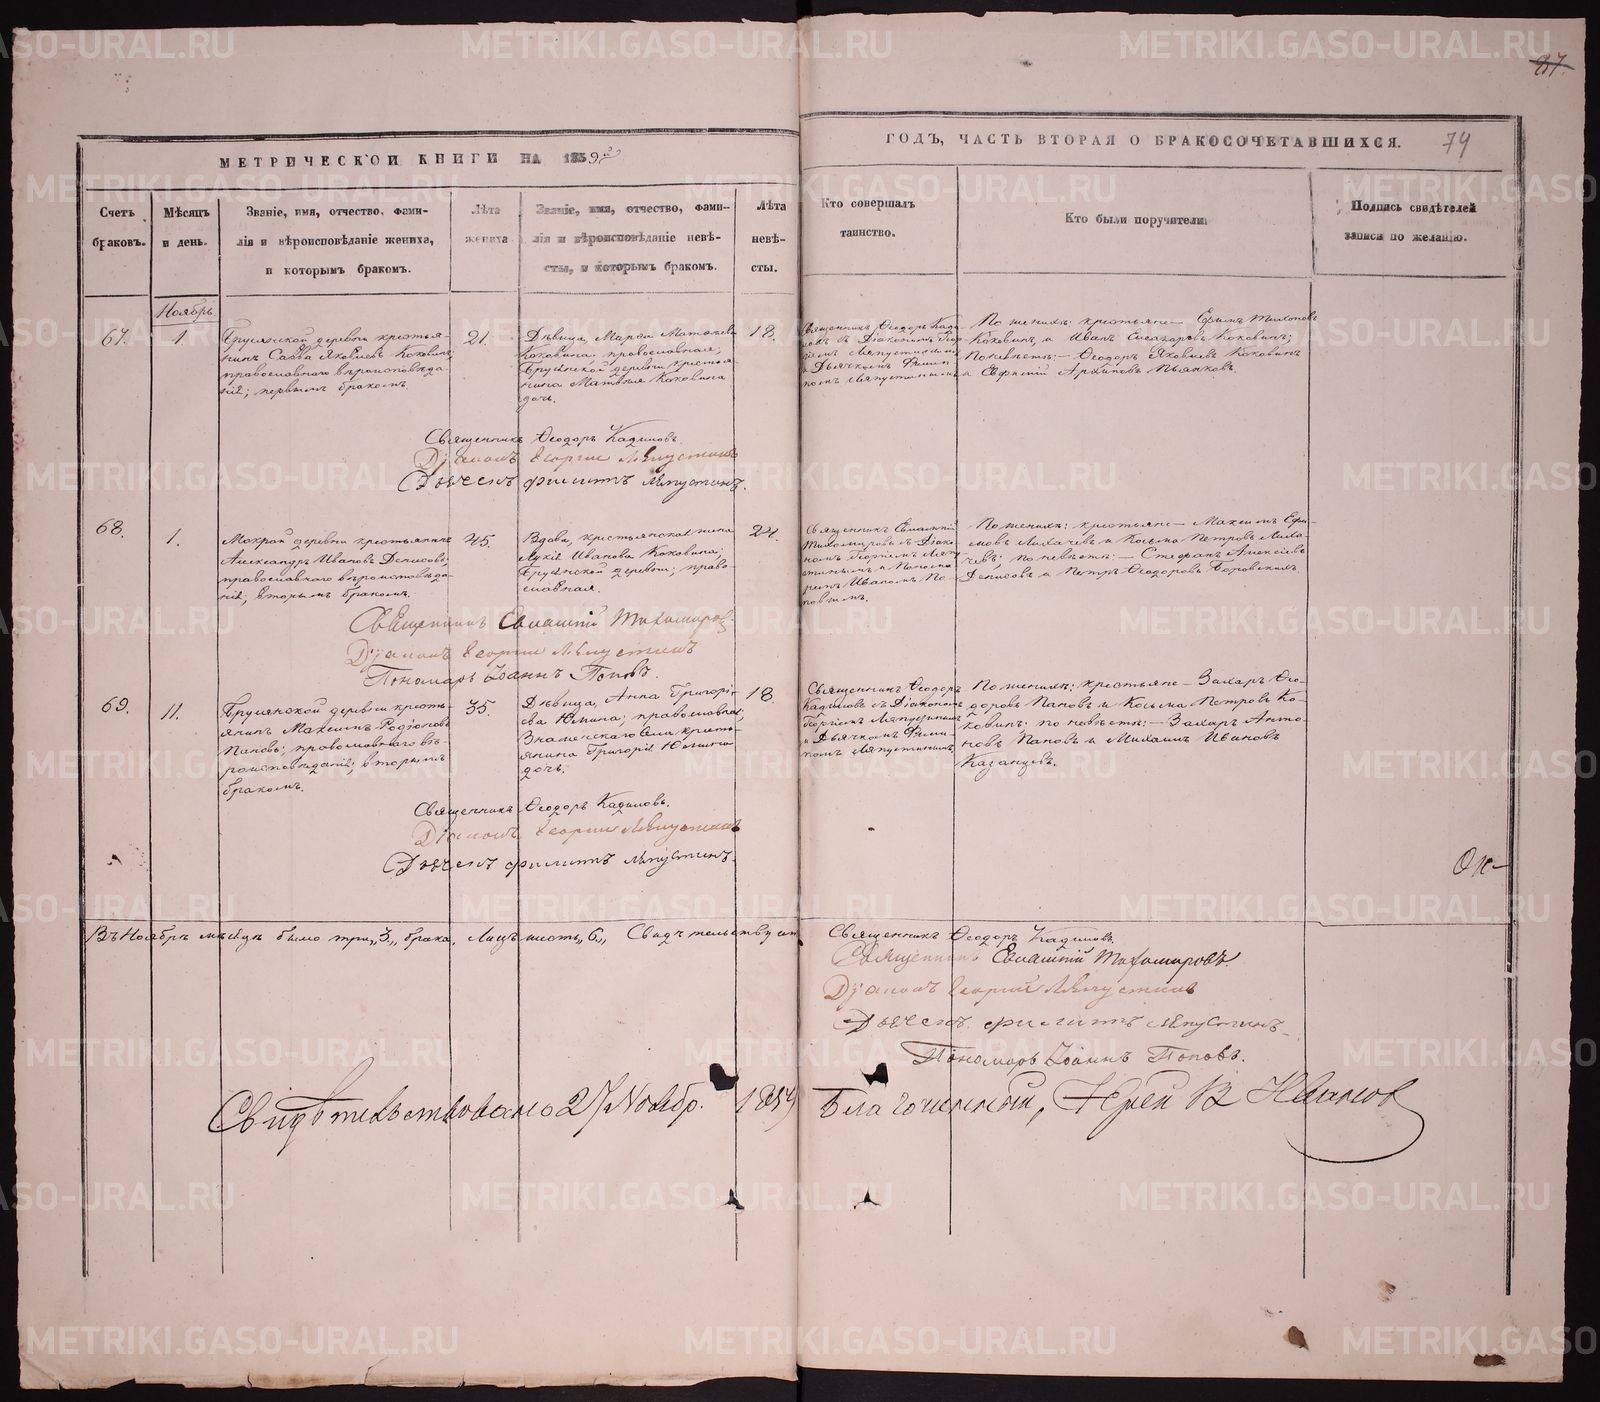 87.
МЕТРИЧЕСКОЙ КНИГИ НА 1859й
ГОДЪ, ЧАСТЬ ВТОРАЯ О БРАКОСОЧЕТАВШИХСЯ. 74
Счетъ браковъ.
Мѣсяцъ и день.
Званіе, имя, отчество, фами-
лія и вѣроисповѣданіе жениха,
и которымъ бракомъ.
Лѣта
жениха
Званіе, имя, отчество, фами-
лія и вѣроисповѣданіе невѣ-
сты, и которымъ бракомъ.
Лѣта
невѣ-
сты.
Кто совершалъ
таинство.
Кто были поручители
Подпись свидѣтелей
записи по желанію.
Ноябрь
67.
1.
деревни крестья-
нинъ Савва Яковлевъ Коковинъ,
православнаго вѣроисповѣда-
нія; первымъ бракомъ.
21.
Дѣвица, Марѳа Матѳіева
Коковина православная,
деревни крестья-
нина Матѳія Коковина
дочь.
18.
Священникъ Ѳеодоръ Кади-
мовъ съ Діакономъ Геор-
гіемъ Ляпустинымъ
и Дьячкомъ Фили-
помъ Ляпустинымъ
По женихѣ: крестьяне — Ефимъ Тихоновъ
Коковинъ и Иванъ Елеазаровъ Коковинъ;
По невѣстѣ: — Ѳеодоръ Яковлевъ Коковинъ
и Евфимій Архиповъ Пьянковъ.
Священникъ Ѳеодоръ Кадимовъ.
Діаконъ Георгій Ляпустинъ
Дьячекъ Филиппъ Ляпустинъ.
68.
1.
Мокрой деревни крестьянинъ
Александръ Ивановъ Денисовъ,
православнаго вѣроисповѣда-
нія; вторымъ бракомъ.
45.
Вдова, крестьянская жена
Лукія Иванова Коковина;
деревни; право-
славная.
24.
Священникъ Евлампій
Тихомировъ съ Діако-
номъ Георгіемъ Ляпу-
стинымъ и Понома-
ремъ Иваномъ По-
повымъ.
По женихѣ: крестьяне — Максимъ Ефи-
мовъ Лихачевъ и Косьма Петровъ Лиха-
чевъ; по невѣстѣ: — Стефанъ Алексіевъ
Денисовъ и Петръ Ѳеодоровъ Боровскихъ
Священникъ Евлампій Тихомировъ.
Діаконъ Георгій Ляпустинъ
Пономарь Іоаннъ Поповъ.
69.
11.
деревни кресть-
янинъ Максимъ Родіоновъ
Пановъ; православнаго вѣ-
роисповѣданія; вторымъ
бракомъ.
35.
Дѣвица, Анна Григорі-
ева Юмина; православная;
Знаменскаго села кресть-
янина Григорія Юмина
дочь;
18.
Священникъ Ѳеодоръ
Кадимовъ съ Діакономъ
Георгіемъ Ляпустинымъ
и Дьячкомъ Фили-
помъ Ляпустинымъ
По женихѣ: крестьяне — Захаръ Ѳео-
доровъ Пановъ и Косьма Петровъ Ко-
ковинъ: по невѣстѣ: — Захаръ Анто-
новъ Пановъ и Михаилъ Ивановъ
Казанцевъ.
Священникъ Ѳеодоръ Кадимовъ.
Діаконъ Георгій Ляпустинъ
Дьячекъ Филиппъ Ляпустинъ.
Въ Ноябрѣ мѣсяцѣ было три „3„ брака, лицъ шесть „6„ Свидѣтельствуютъ
Священникъ Ѳеодоръ Кадимовъ.
Священникъ Евлампій Тихомировъ.
Діаконъ Георгій Ляпустинъ
Дьячекъ Филиппъ Ляпустинъ
Пономарь Іоаннъ Поповъ.
Свидѣтельствовано 27 Ноябр. 1859 Благочинный, Іерей В Ивановъ
METRIKI.GASO-URAL.RU